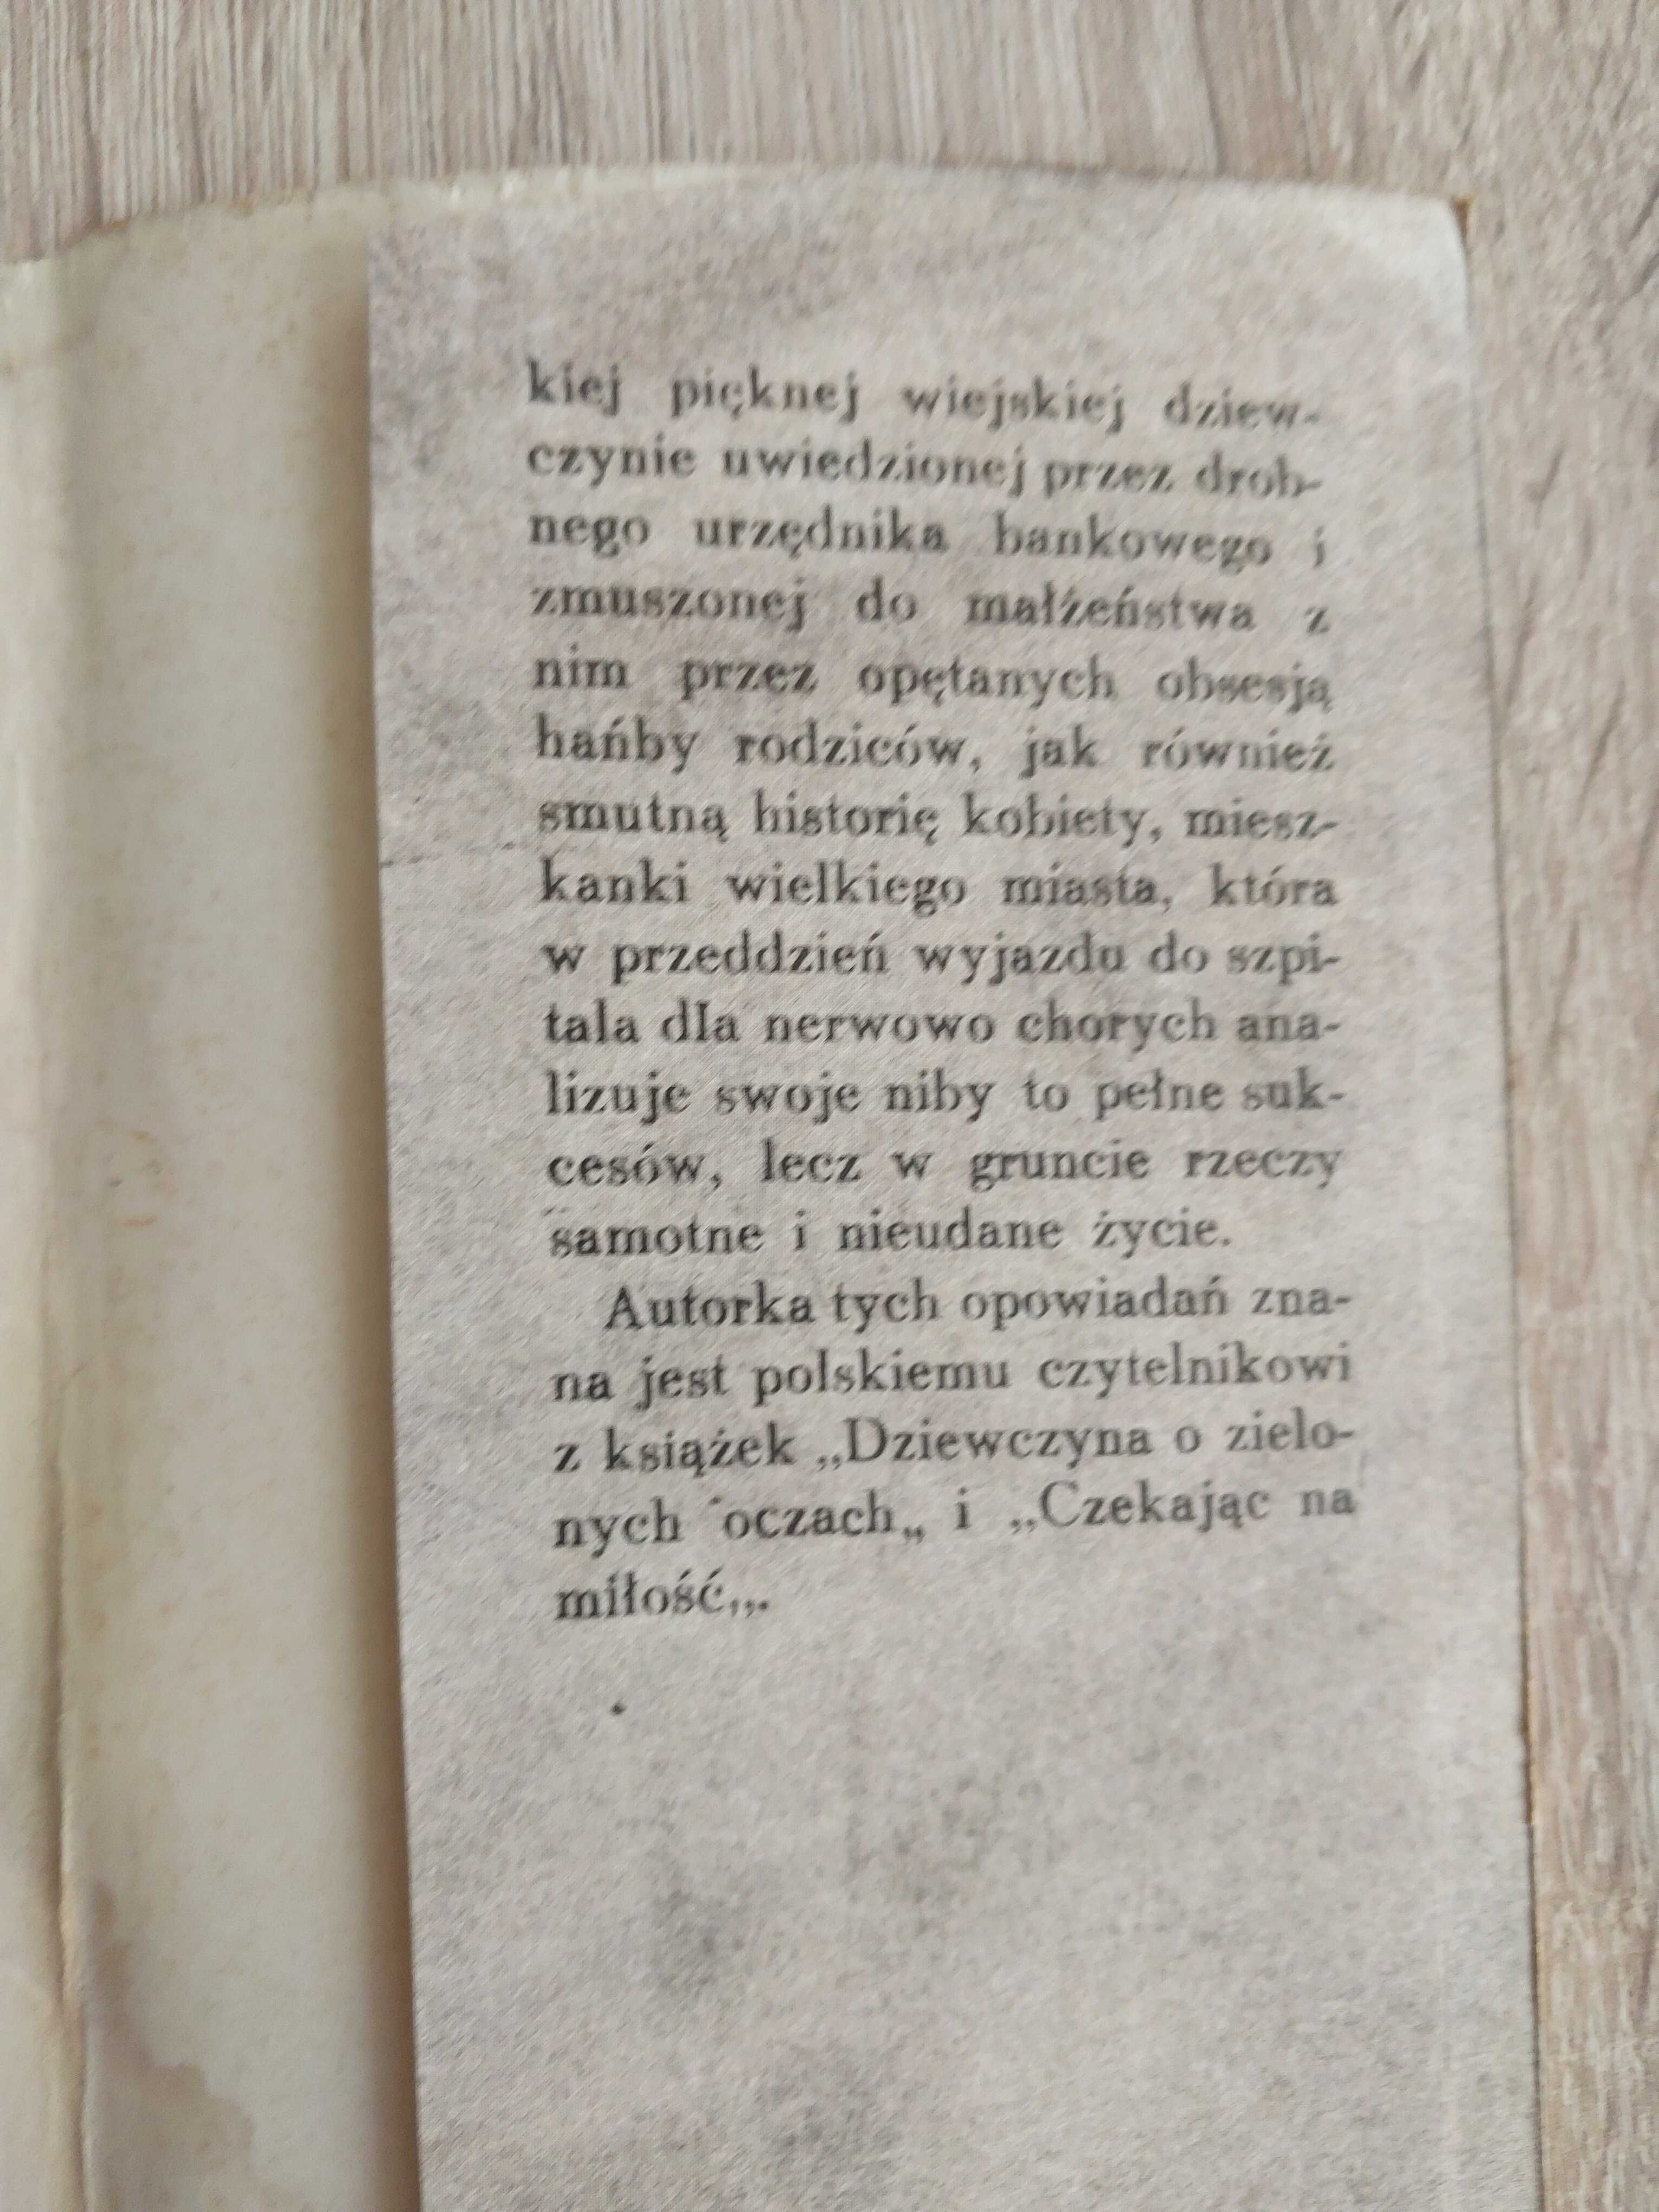 kiej pięknej wiejskiej dziew-
czynie uwiedzionej przez drob-
nego urzędnika bankowego i
zmuszonej do małżeństwa z
nim przez opętanych obsesją
hańby rodziców, jak również
smutną historię kobiety, miesz-
kanki wielkiego miasta, która
w przeddzień wyjazdu do szpi-
tala dla nerwowo chorych ana-
lizuje swoje niby to pełne suk-
cesów, lecz w gruncie rzeczy
samotne i nieudane życie.
Autorka tych opowiadań zna-
na jest polskiemu czytelnikowi
z książek „Dziewczyna o zielo-
nych oczach„ i „Czekając na
miłość„.